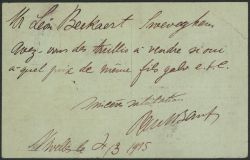 Mr Léon Beekaert Sweveghem
Avez-vous des treillis à vendre si oui
à quel prix de même fils galv. e.t.c.
mes salutations
le 2/3 1915